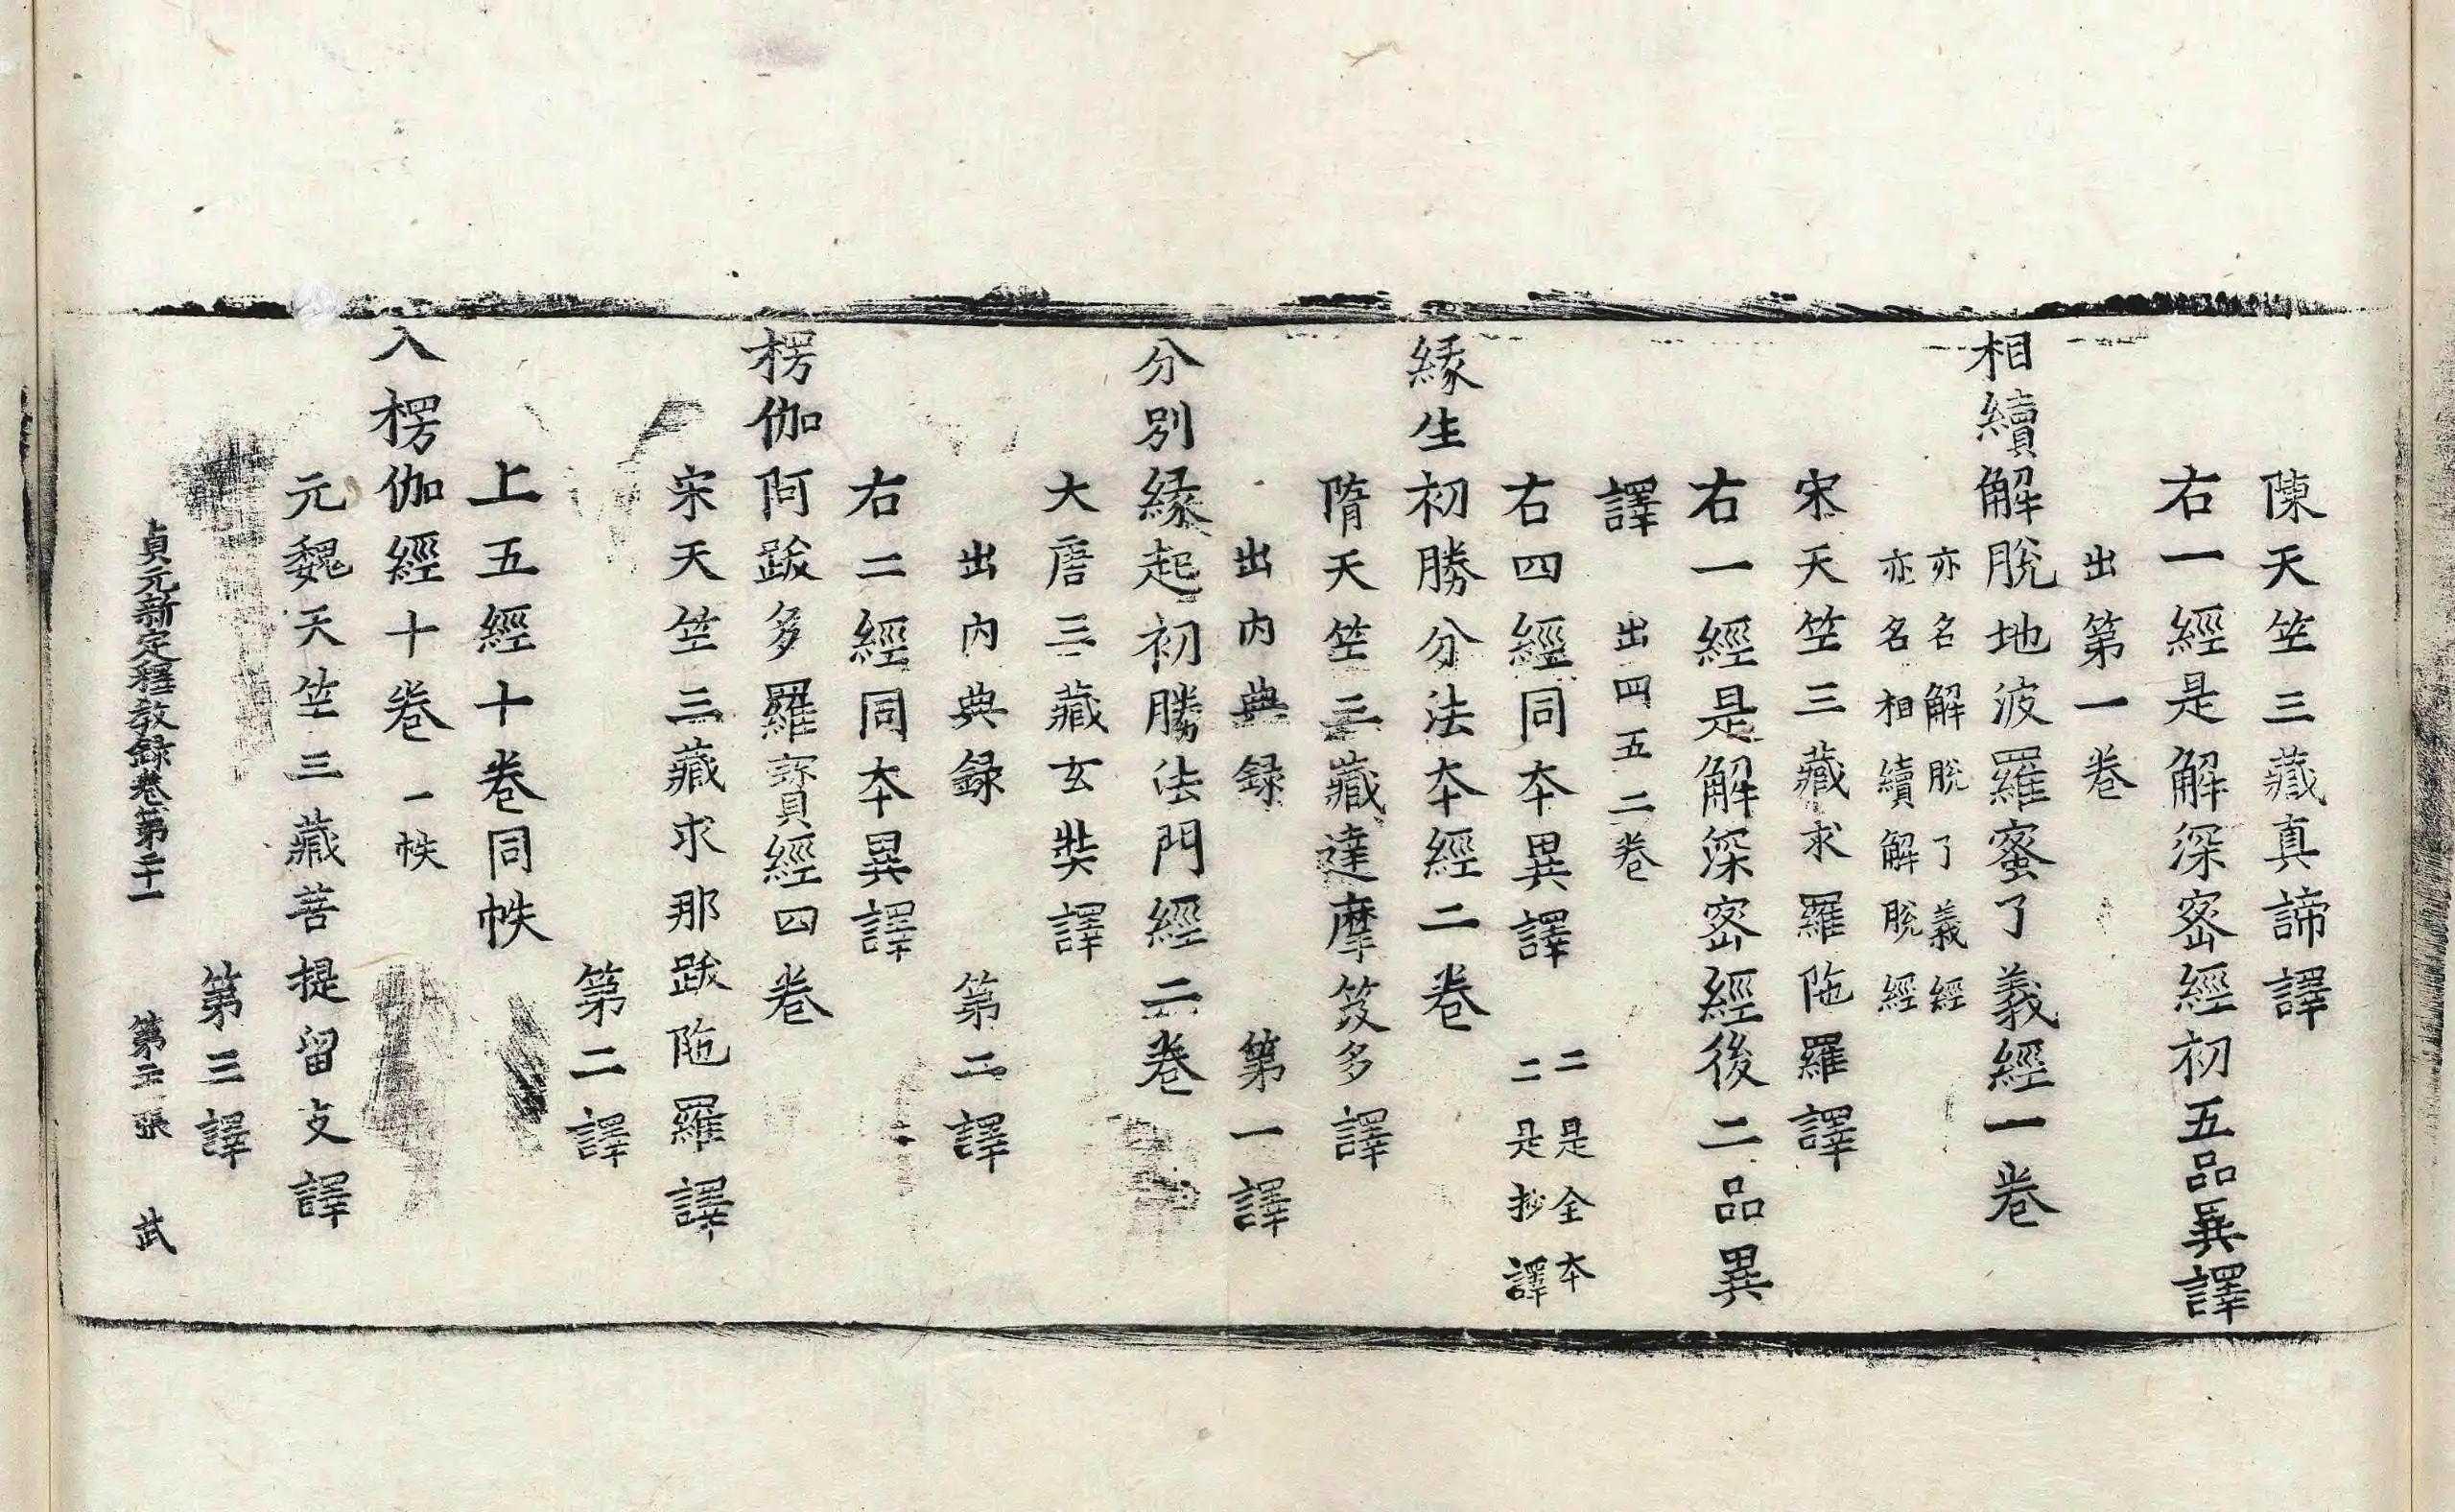 陳天竺三藏真諦譯
右一經是解深密經初五品異譯
出第一卷
相續解脫地波羅蜜了義經一卷
亦名解脫了義經
亦名相續解脫經
宋天竺三藏求羅陁羅譯
右一經是解深密經後二品異
譯出四五二卷
右四經同本異譯二是全本
二是抄譯
緣生初勝分法本經二卷
隋天竺三藏達摩笈多譯
出內典録第一譯
分別緣起初勝法門經二卷
大唐三藏玄奘譯
出內典録第二譯
右二經同本異譯
楞伽阿跋多羅寶經四卷
宋天竺三藏求那跋陁羅譯
第二譯
上五經十卷同帙
入楞伽經十卷一帙
元魏天竺三藏菩提留支譯
第三譯
貞元新定釋教録卷第二十一 第二張 武